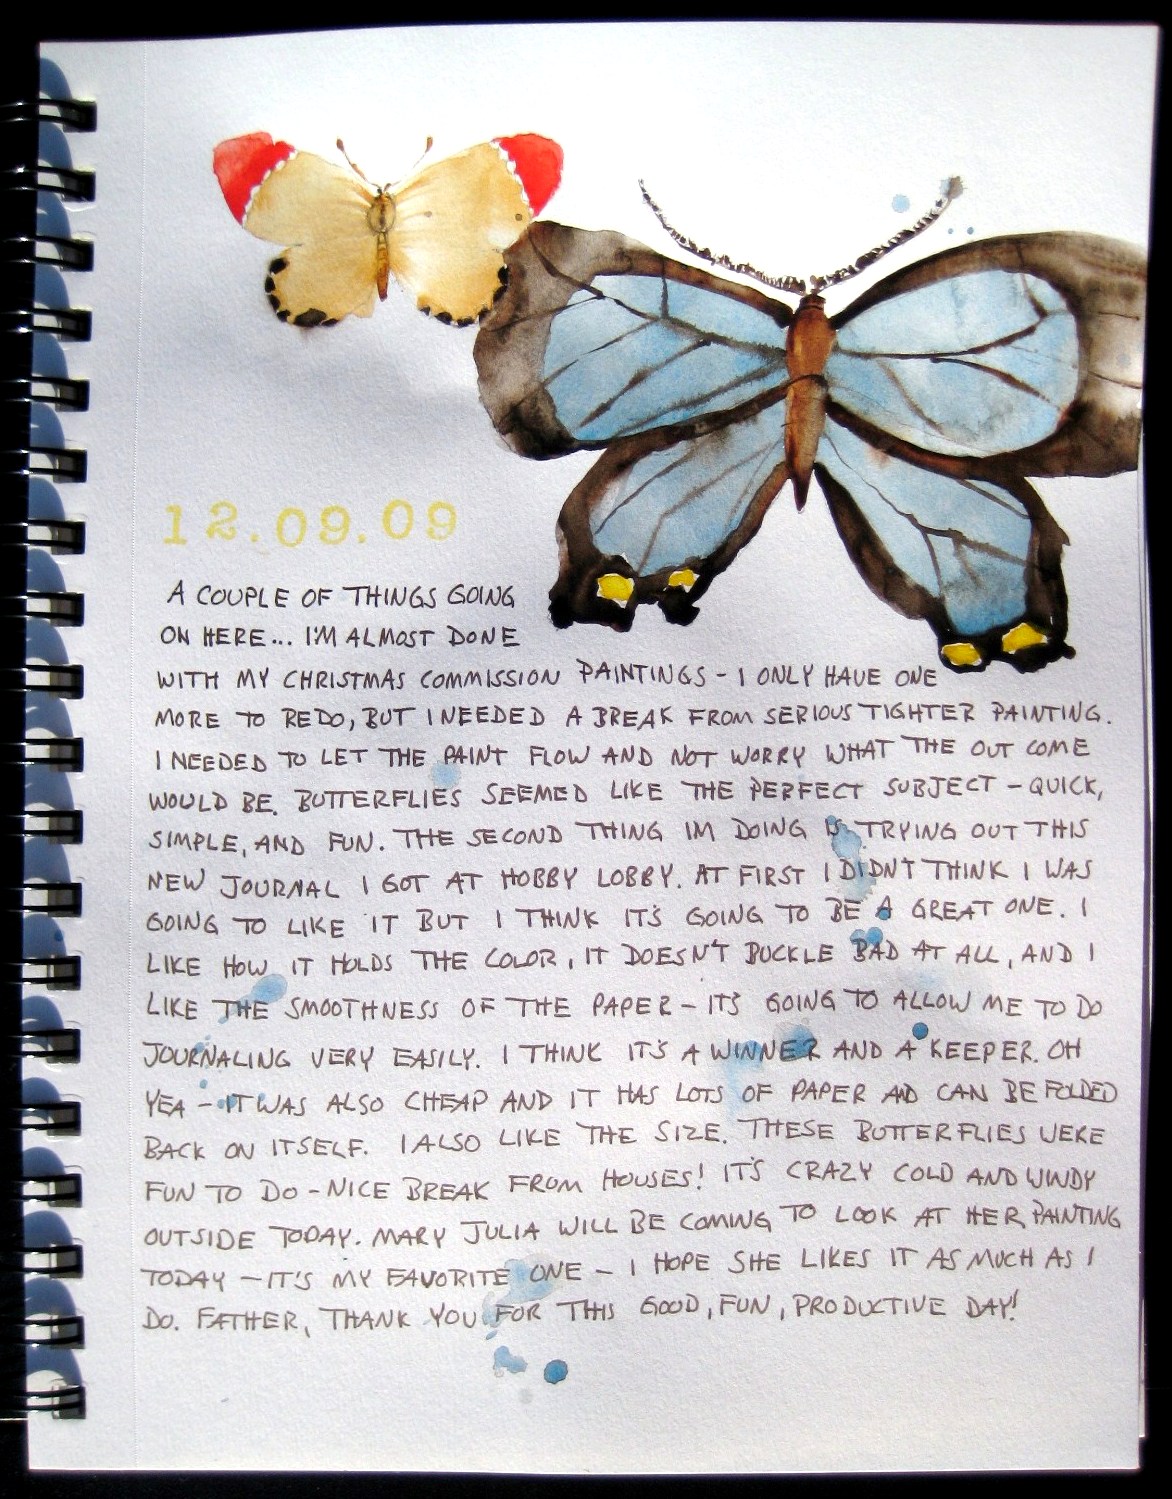 12.09.09
A COUPLE OF THINGS GOING
ON HERE... I'M ALMOST DONE
WITH MY CHRISTMAS COMMISSION PAINTINGS - I ONLY HAVE ONE
MORE TO REDO, BUT I NEEDED A BREAK FROM SERIOUS TIGHTER PAINTING.
I NEEDED TO LET THE PAINT FLOW AND NOT WORRY WHAT THE OUT COME
WOULD BE. BUTTERFLIES SEEMED LIKE THE PERFECT SUBJECT - QUICK,
SIMPLE, AND FUN. THE SECOND THING IM DOING IS TRYING OUT THIS
NEW JOURNAL I GOT AT HOBBY LOBBY. AT FIRST I DIDN'T THINK I WAS
GOING TO LIKE IT BUT I THINK IT'S GOING TO BE A GREAT ONE. I
LIKE HOW IT HOLDS THE COLOR, IT DOESN'T BUCKLE BAD AT ALL, AND I
LIKE THE SMOOTHNESS OF THE PAPER - IT'S GOING TO ALLOW ME TO DO
JOURNALING VERY EASILY. I THINK IT'S A WINNER AND A KEEPER. OH
YEA - IT WAS ALSO CHEAP AND IT HAS LOTS OF PAPER AND CAN BE FOLDED
BACK ON ITSELF. I ALSO LIKE THE SIZE. THESE BUTTERFLIES WERE
FUN TO DO - NICE BREAK FROM HOUSES! IT'S CRAZY COLD AND WINDY
OUTSIDE TODAY. MARY JULIA WILL BE COMING TO LOOK AT HER PAINTING
TODAY - IT'S MY FAVORITE ONE - I HOPE SHE LIKES IT AS MUCH AS I
DO. FATHER, THANK YOU FOR THIS GOOD, FUN, PRODUCTIVE DAY!